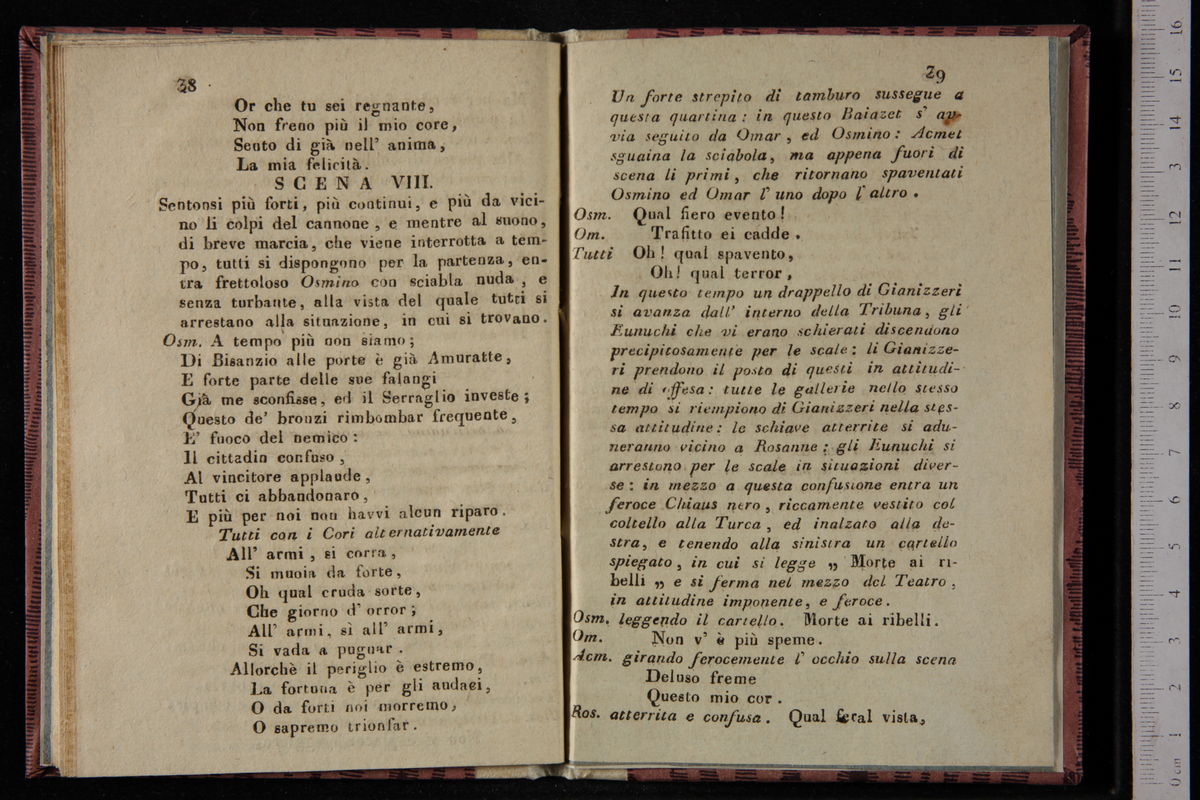 38
Or che tu sei regnante,
Non freno più il mio core,
Sento di già nell' anima,
La mia felicità.
SCENA VIII.
Sentonsi più forti, più continui, e più da vici-
no li colpi del cannone, e mentre al suono,
di breve marcia, che viene interrotta a tem-
po, tutti si dispongono per la partenza, en-
tra frettoloso Osmino con sciabla nuda, e
senza turbante, alla vista del quale tutti si
arrestano alla situazione, in cui si trovano.
Osm. A tempo più non siamo;
Di Bisanzio alle porte è già Amuratte,
E forte parte delle sue falangi
Già me sconfisse, ed il Serraglio investe;
Questo de' bronzi rimbombar frequente,
E' fuoco del nemico:
Il cittadin confuso,
Al vincitore applaude,
Tutti ci abbandonaro,
E più per noi non havvi alcun riparo.
Tutti con i Cori alternativamente
All' armi, si corra,
Si muoia da forte,
Oh qual cruda sorte,
Che giorno d' orror;
All' armi, sì all' armi,
Si vada a pugnar.
Allorchè il periglio è estremo,
La fortuna è per gli audaci,
O da forti noi morremo,
O sapremo trionfar.
39
Un forte strepito di tamburo sussegue a
questa quartina: in questo Baiazet s' av-
via seguito da Omar, ed Osmino: Acmet
sguaina la sciabola, ma appena fuori di
scena li primi, che ritornano spaventati
Osmino ed Omar l' uno dopo l' altro.
Osm. Qual fiero evento!
Om. Trafitto ei cadde.
Tutti Oh! qual spavento,
Oh! qual terror,
In questo tempo un drappello di Gianizzeri
si avanza dall' interno della Tribuna, gli
Eunuchi che vi erano schierati discendono
precipitosamente per le scale: li Gianizze-
ri prendono il posto di questi in attitudi-
ne di offesa: tutte le gallerie nello stesso
tempo si riempiono di Gianizzeri nella stes-
sa attitudine: le schiave atterrite si adu-
neranno vicino a Rosanne; gli Eunuchi si
arrestono per le scale in situazioni diver-
se: in mezzo a questa confusione entra un
feroce Chiaus nero, riccamente vestito col
coltello alla Turca, ed inalzato alla de-
stra, e tenendo alla sinistra un cartello
spiegato, in cui si legge „ Morte ai ri-
belli „ e si ferma nel mezzo del Teatro,
in attitudine imponente, e feroce.
Osm. leggendo il cartello. Morte ai ribelli.
Om. Non v' è più speme.
Acm. girando ferocemente l' occhio sulla scena
Deluso freme
Questo mio cor.
Ros. atterrita e confusa. Qual feral vista,
0 cm 1 2 3 4 5 6 7 8 9 10 11 12 13 14 15 16